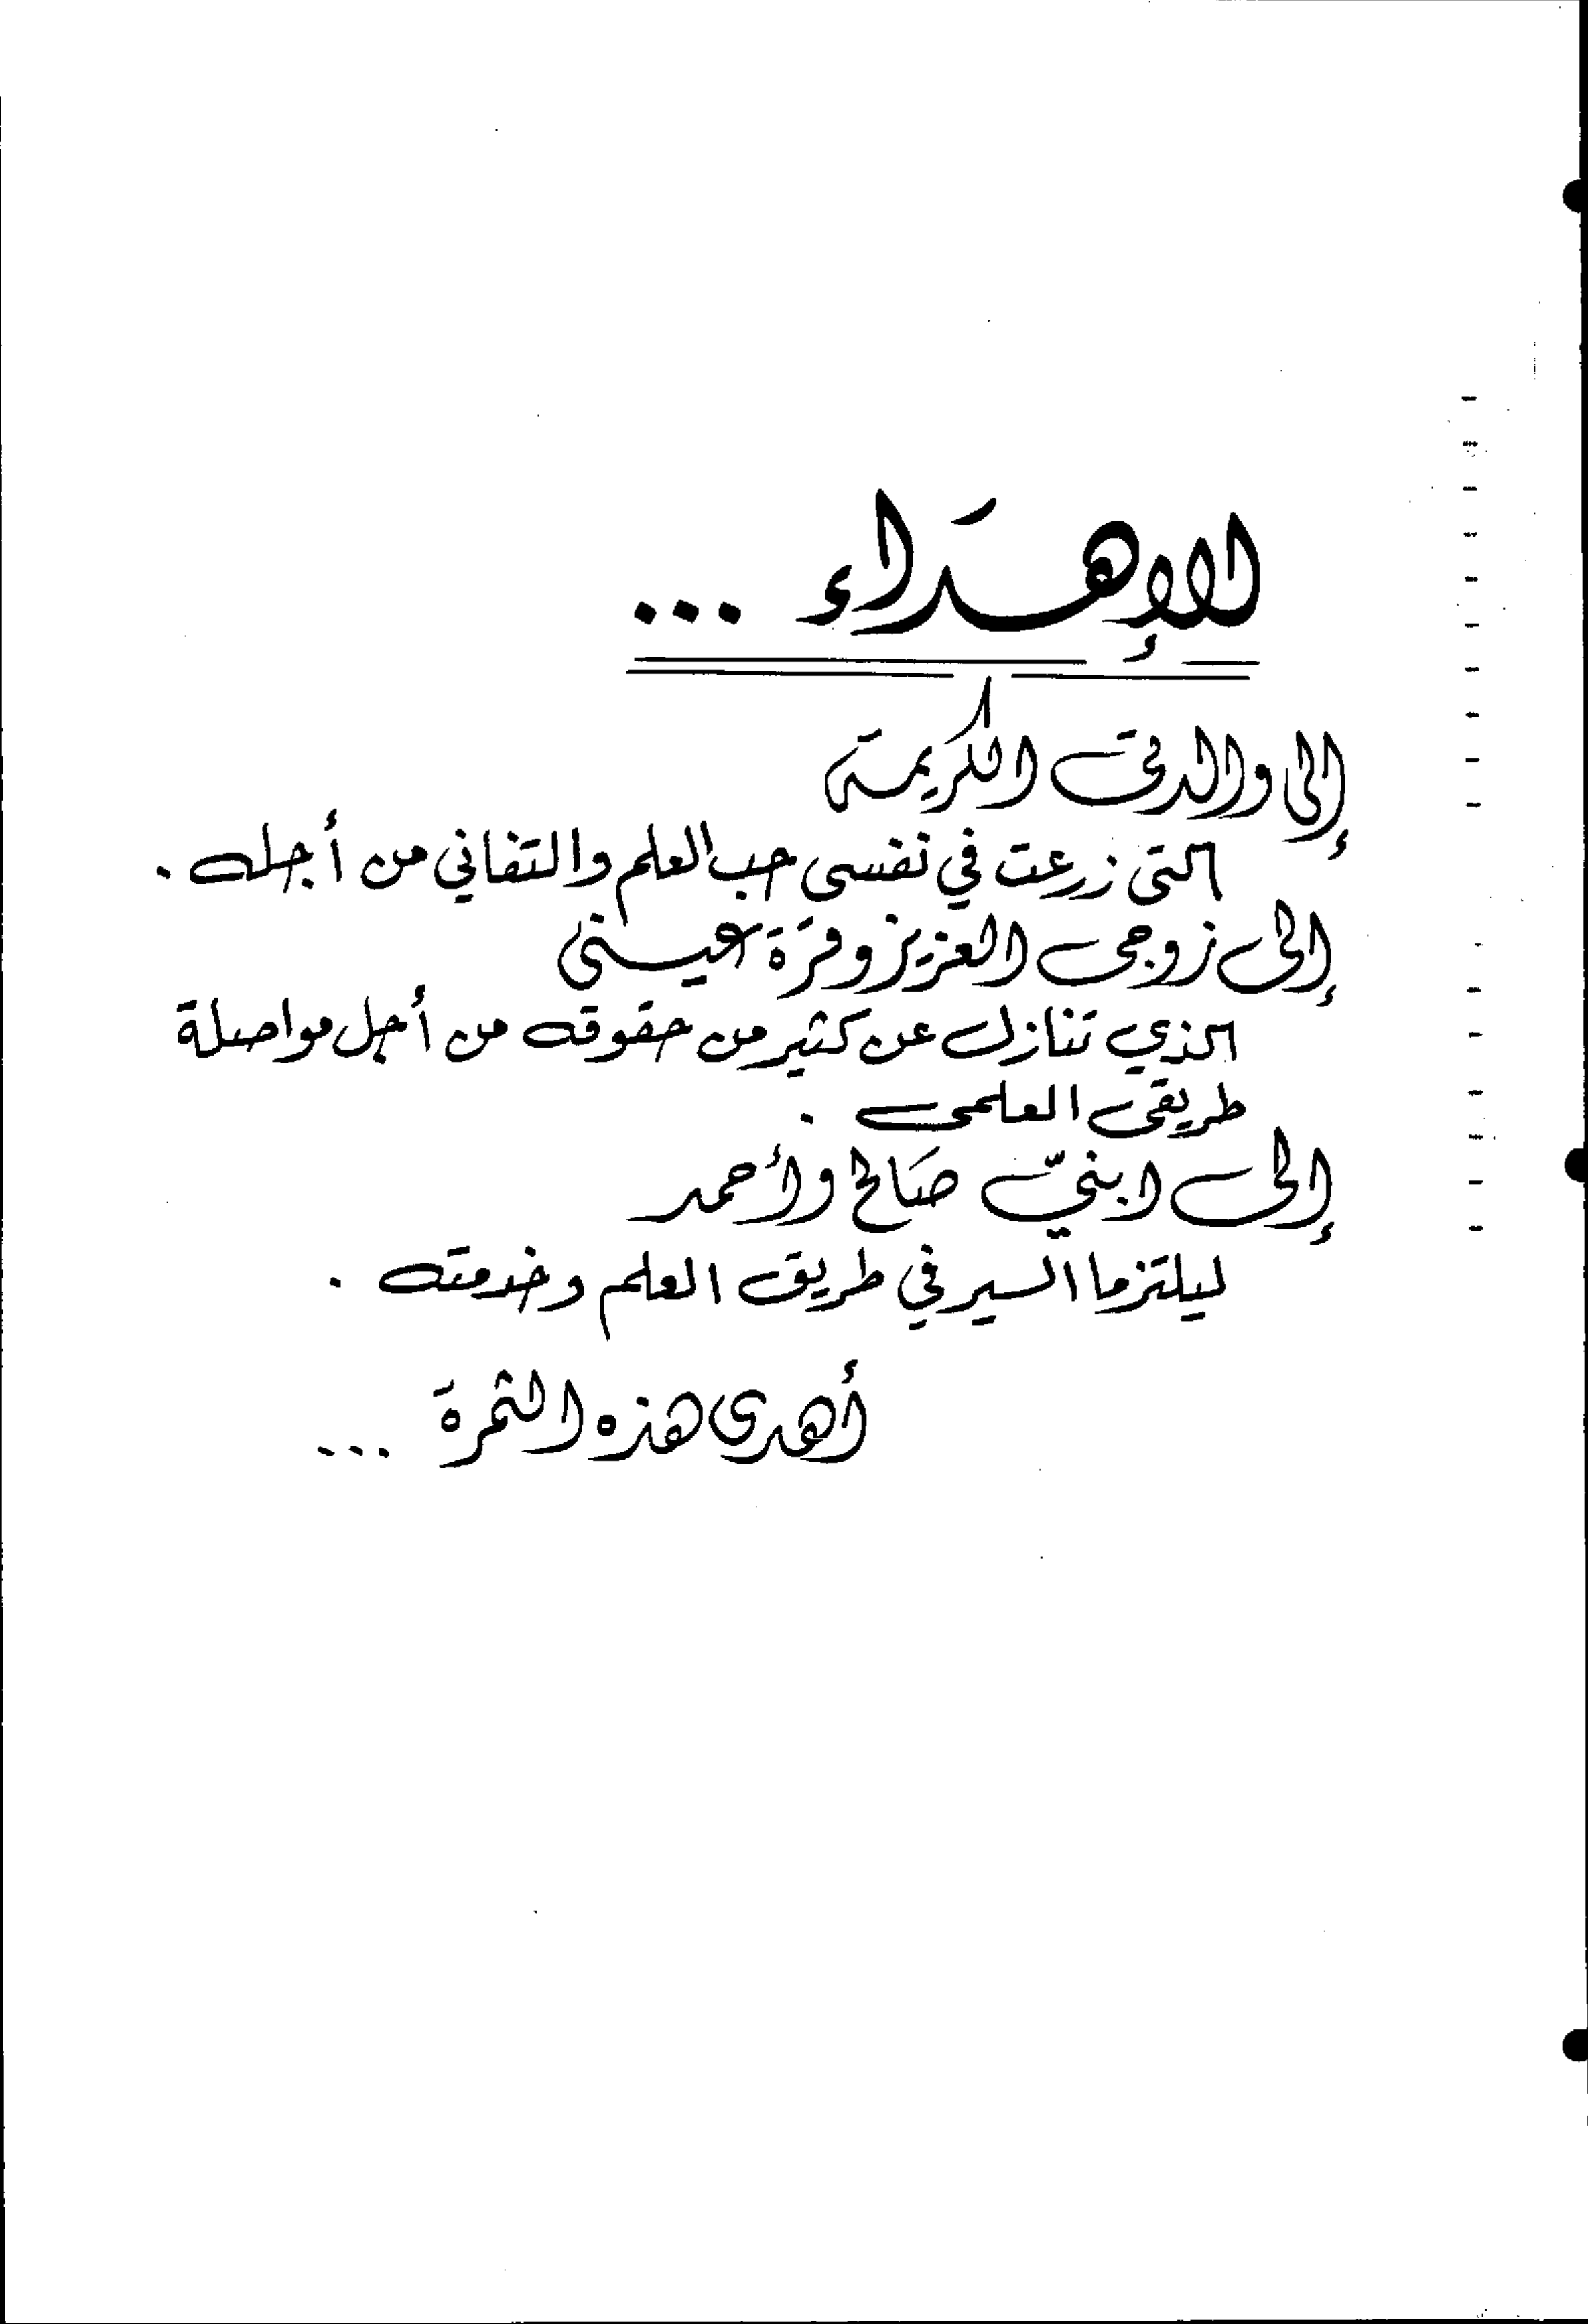 الإهدَاء ...
إلى والدتى الكريمة
التى زرعت في نفسى حب العلم والتفاني من أجله .
إلى زوجى العزيز وقرّة عينى
الذي تنازل عن كثير من حقوقه من أجل مواصلة
طريقى العلمى .
إلى ابنيّ صَالح وأحمد
ليلتزما السير في طريق العلم وخدمته .
أهدى هذه الثمرة ...